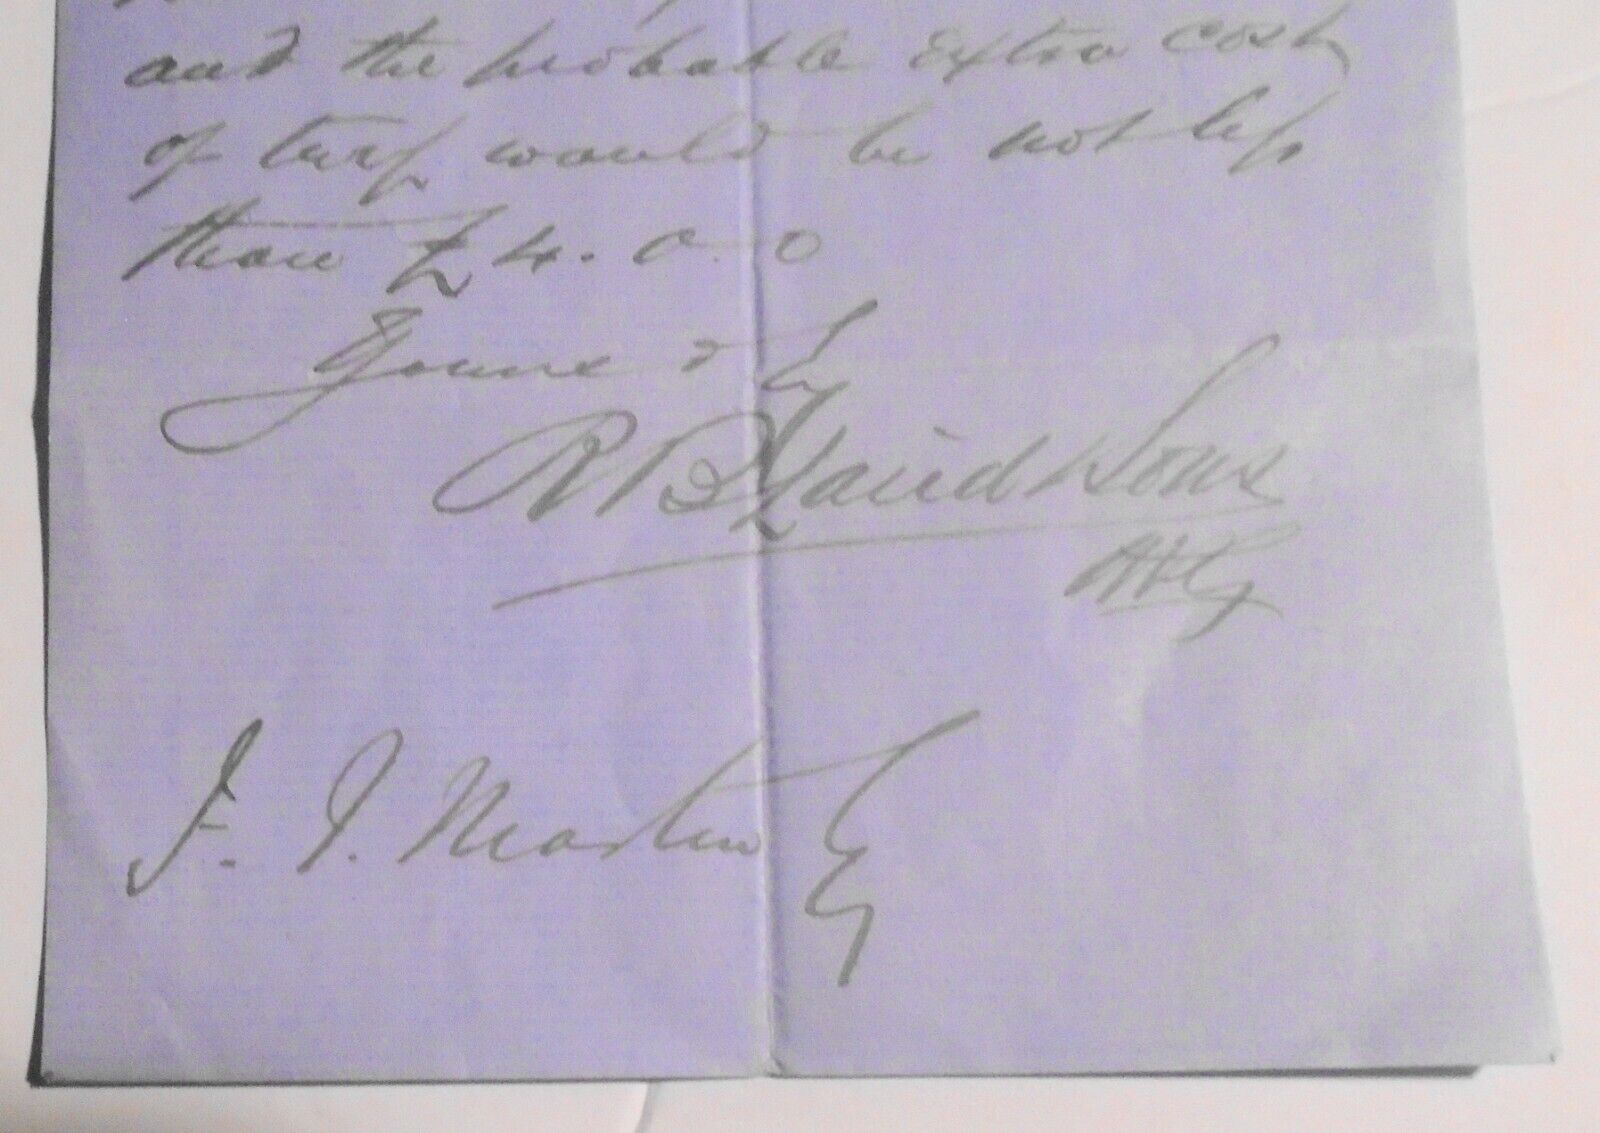 and the probable extra cost
of turf would be not less
than £4. 0. 0
Yours &
R B Laird & Sons
F. J. Martin Esq